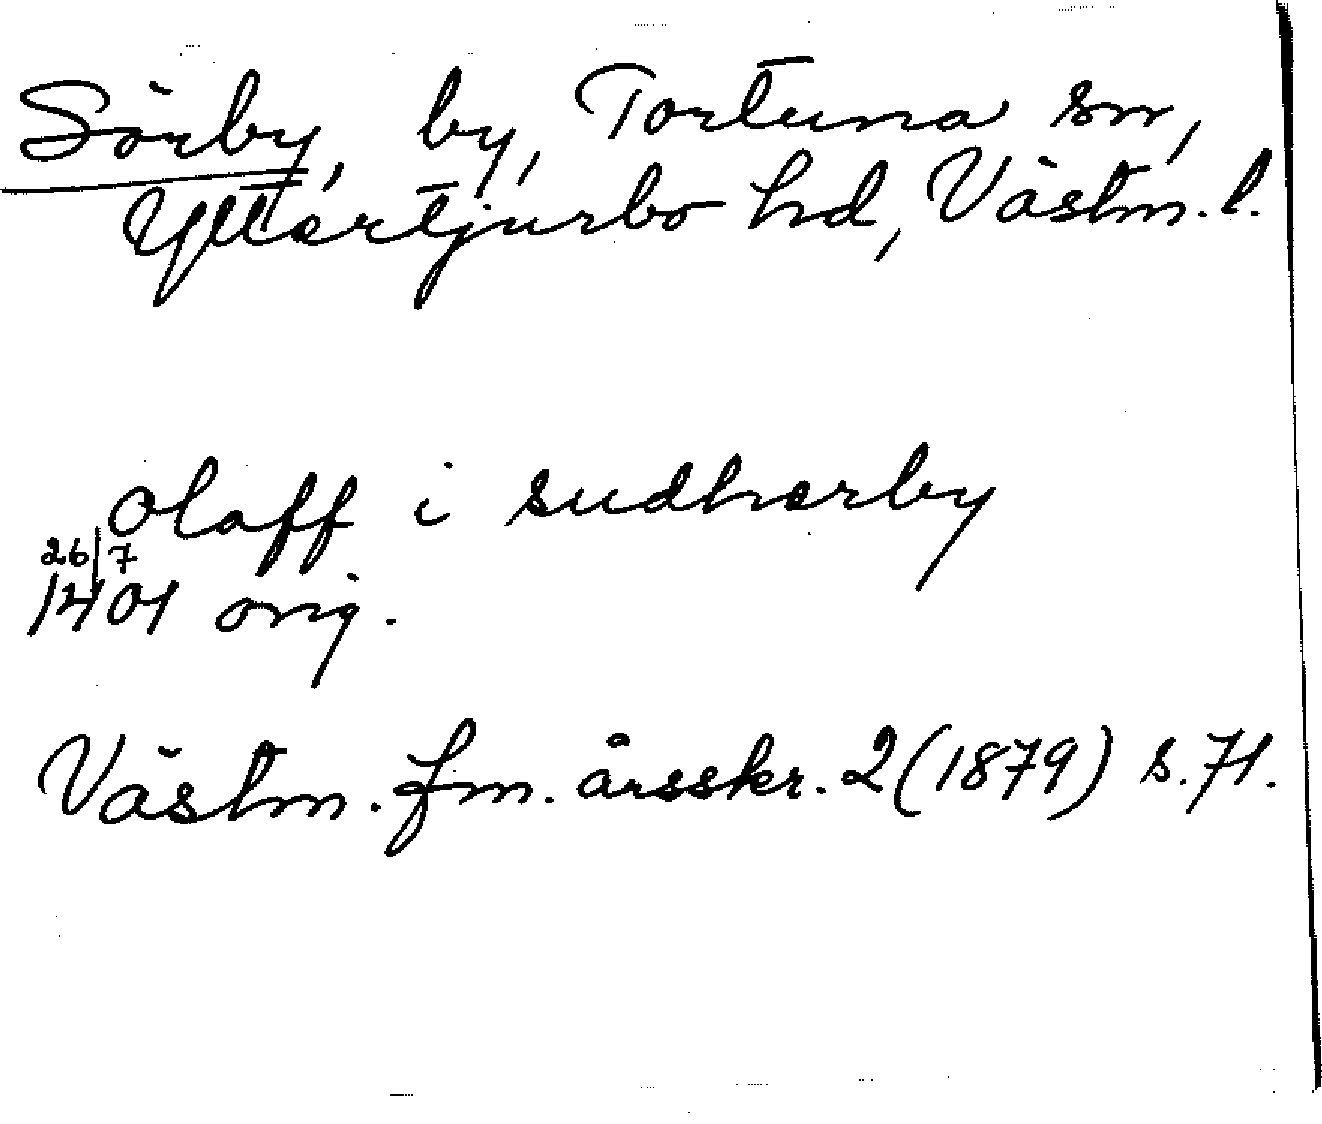 Sörby, by, Tortuna sn,
Yttertjurbo hd, Västm. l.
olaff i sudherby
26/7
1401 orig.
Västm. fm. årsskr. 2 (1879) s. 71.